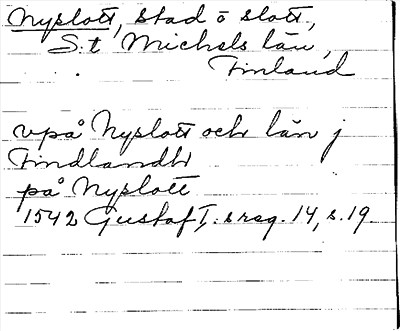 Nyslott, stad o slott,
S:t Michels län,
Finland
vpå Nyslott och län j
Findlandh
på Nyslott
1542 Gustaf I:s reg. 14, s. 19.